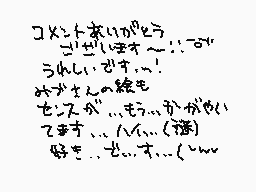 コメントありがとう
ございます〜!!
うれしいです〜!
みづさんの絵も
センスが...もう...かがやい
てます...ハイ...(謎)
好き..で...す...(